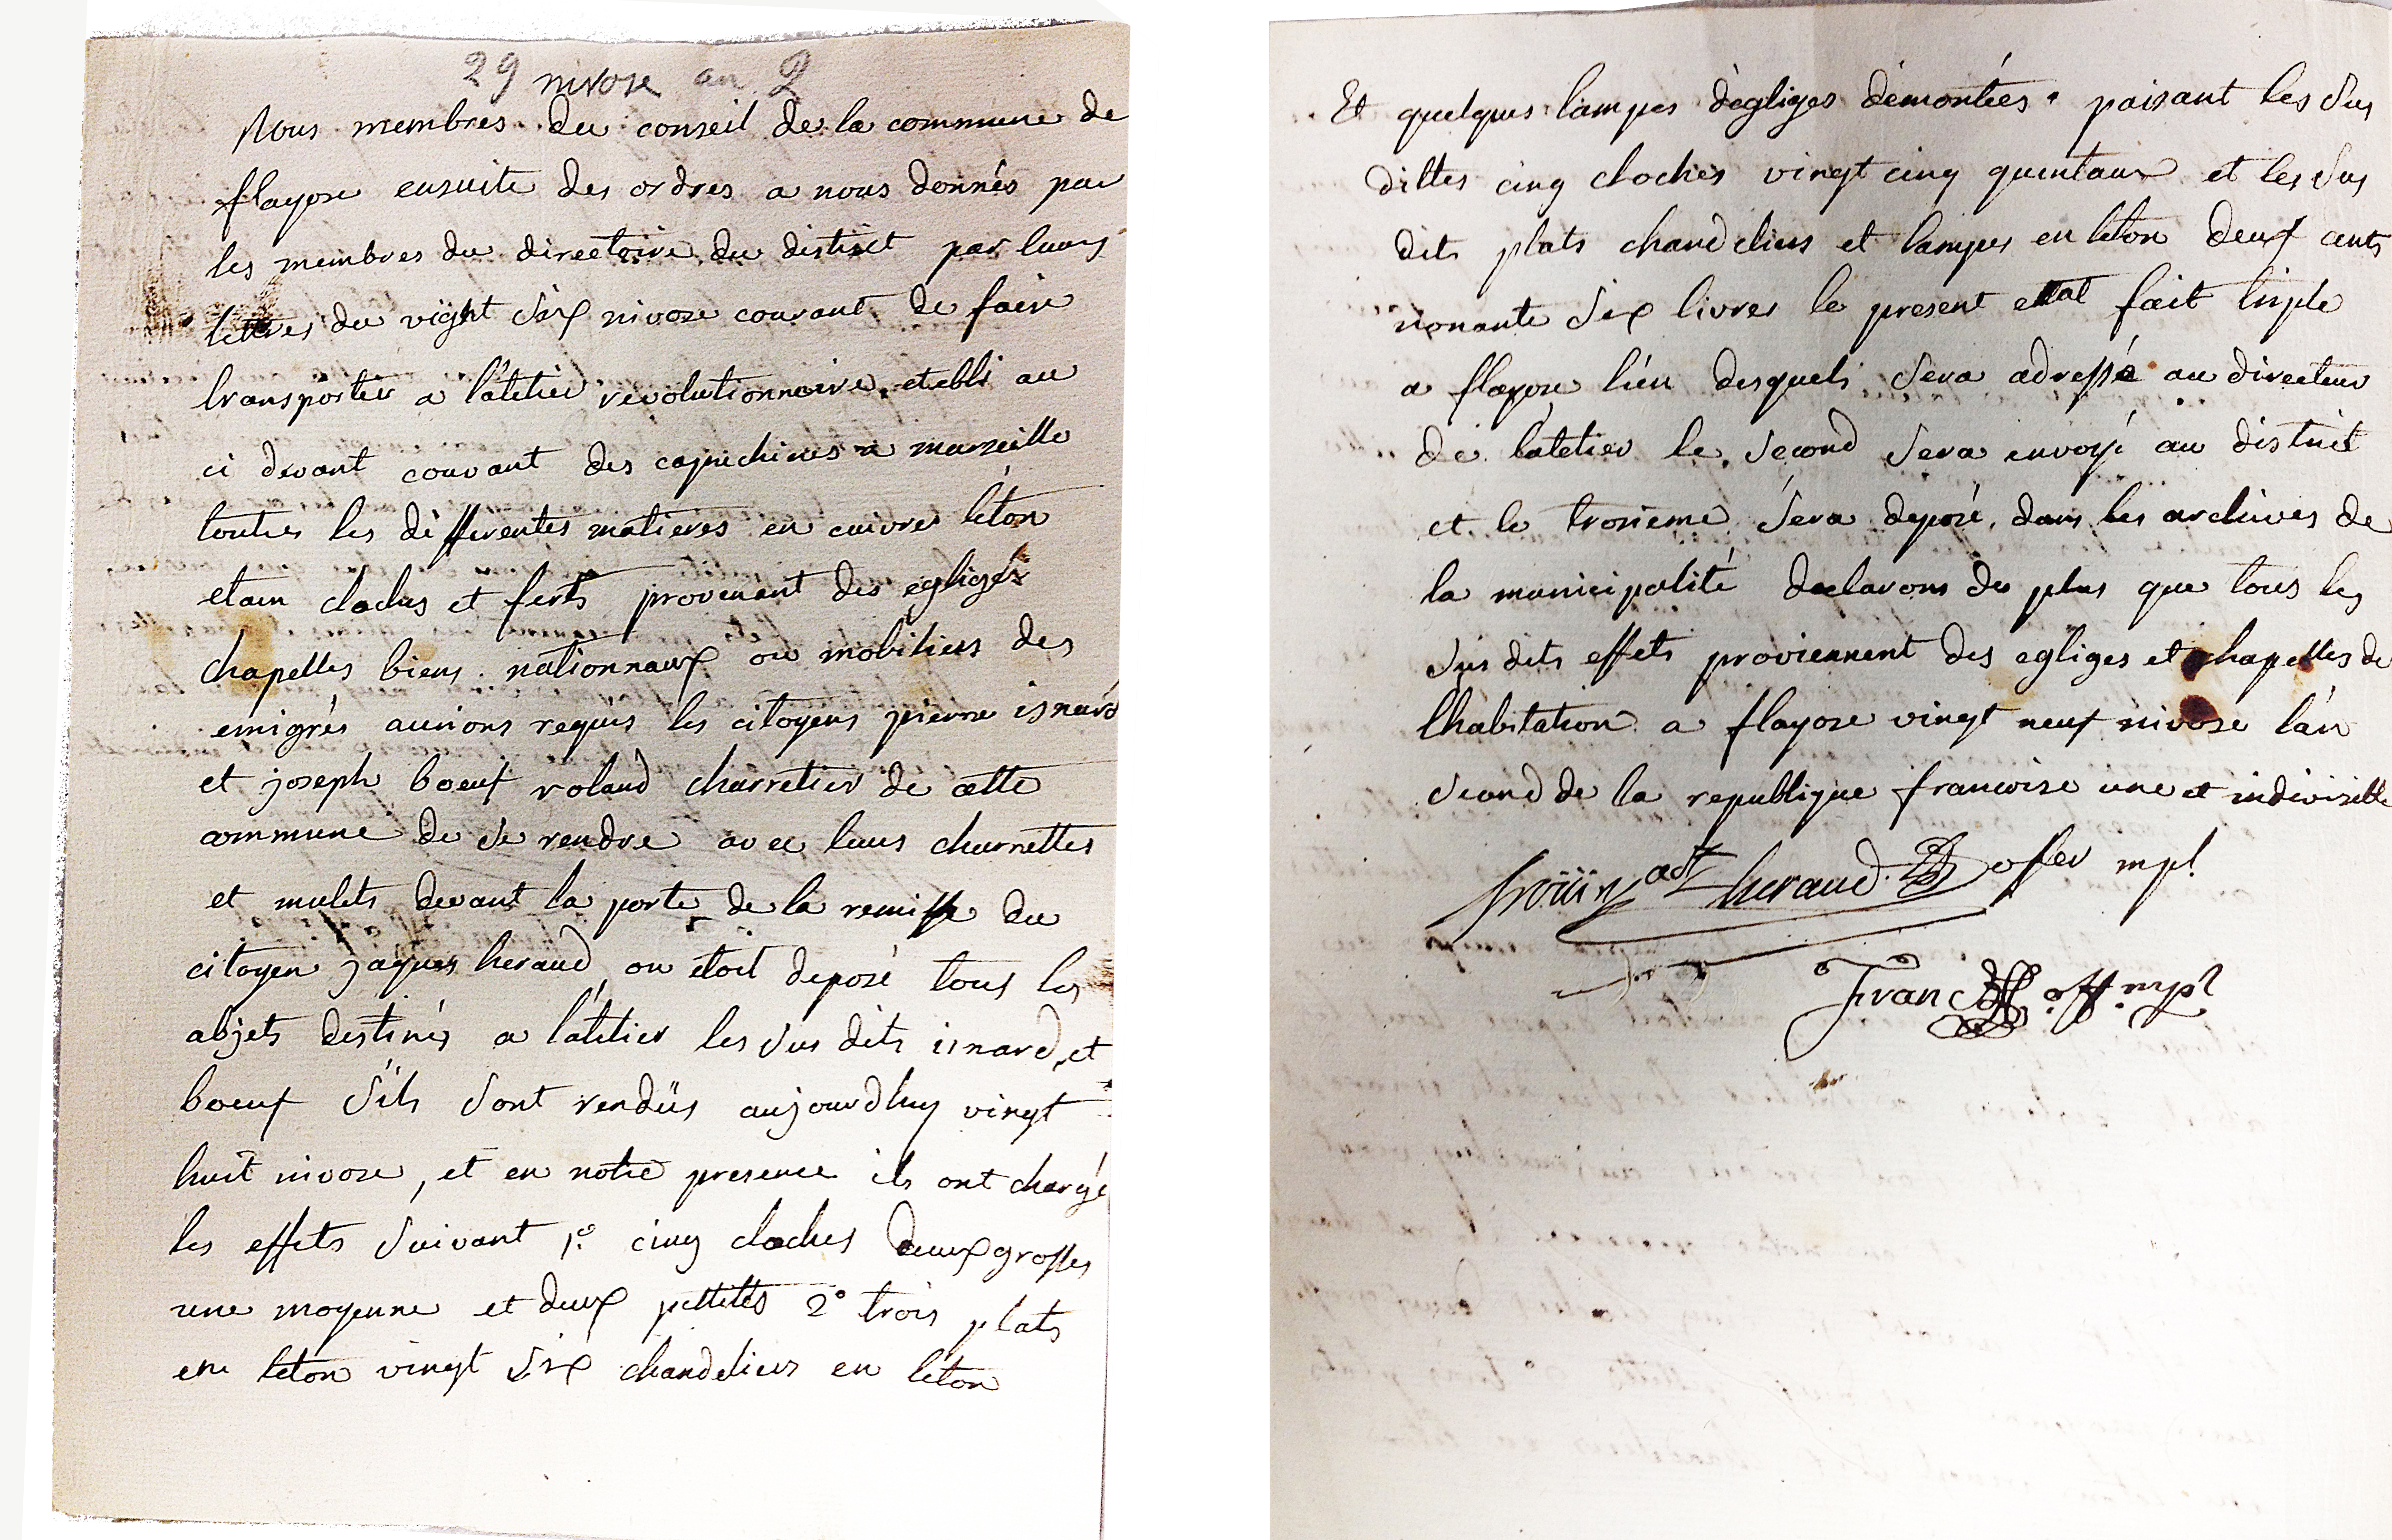 29 nivose an 2
Nous membres du conseil de la commune de
flayose ensuite des ordres a nous donnés par
les membres du directoire du district par leurs
lettres du vight six nivose courant de faire
transporter a l'atelier revolutionnaire etabli au
ci devant couvant des capuchines a marseille
toutes les differentes matieres en cuivre léton
etain cloches et ferts provenant des egliges
chapelles biens nationnaux ou mobiliers des
emigrés aurions requis les citoyens pierre isnard
et joseph boeuf roland charretier de cette
commune de se rendre avec leurs charrettes
et mulets devant la porte de la remisse du
citoyen jaques heraud ou étoit deposé tous les
abjets destinés a l'atelier les sus dits isnard et
boeuf s'ils sont rendüs aujourdhuy vingt
huit nivose, et en notre presence ils ont chargé
les effets suivant 1º cinq cloches deux grosses
une moyenne et deux pettites 2º trois plats
en leton vingt six chandeliers en léton
Et quelques lampes d'egliges démontées paisant les sus
dittes cinq cloches vingt cinq quintaux et les sus
dits plats chandeliers et lampes en leton deux cents
nonante six livres le present ettat fait triple
a flayose l'un desquels sera adressé au directeur
de l'atelier le second sera envoyé au district
et le trosieme sera deposé dans les archives de
la municipalité declarons de plus que tous les
sus dits effets proviennent des egliges et chapelles de
lhabitation a flayose vingt neuf nivose l'an
second de la republique francoise une et indivisible
heraud ofier mpl
Franc off. mpl